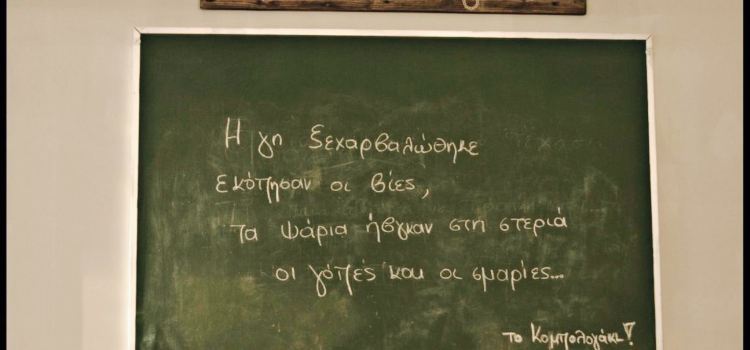 Η γη ξεχαρβαλώθηκε
εκότζησαν οι βίες,
τα ψάρια ήβγκαν στη στεριά
οι γότζές και οι σμαρίες...
το Κομπολογάκι!